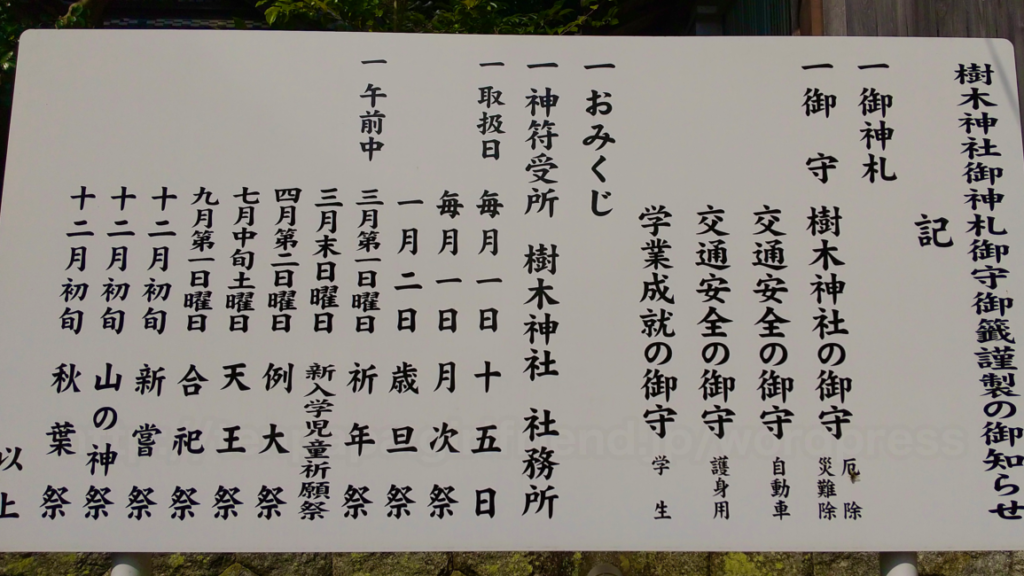 樹木神社御神札御守御籤謹製の御知らせ
記
一御神札
一御 守 樹木神社の御守 厄除 災難除
交通安全の御守 自動車
交通安全の御守 護身用
学業成就の御守 学生
一おみくじ
一神符受所 樹木神社 社務所
一取扱日 毎月一日十五日
毎月一日 月次祭
一月二日 歳旦祭
一午前中 三月第一日曜日 祈年祭
三月末日曜日 新入学児童祈願祭
四月第二日曜日 例大祭
七月中旬土曜日 天王祭
九月第一日曜日 合祀祭
十二月初旬 新嘗祭
十二月初旬 山の神祭
十二月初旬 秋葉祭
以上